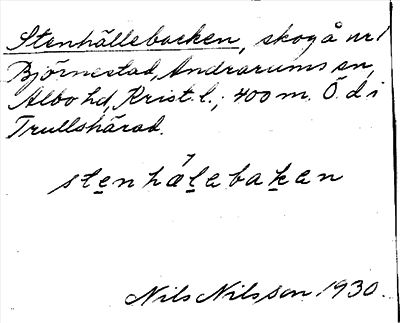 Stenhällebacken, skog å nr 1
Björnestad, Andrarums sn,
Albo hd, Krist. l.; 400 m. Ö. d i
Trullshärad.
stenhälebakan
Nils Nilsson 1930.